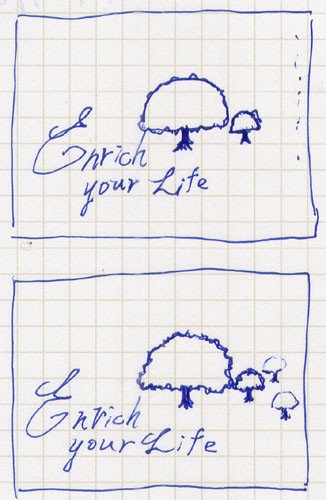 Enrich
your Life
Enrich
your Life